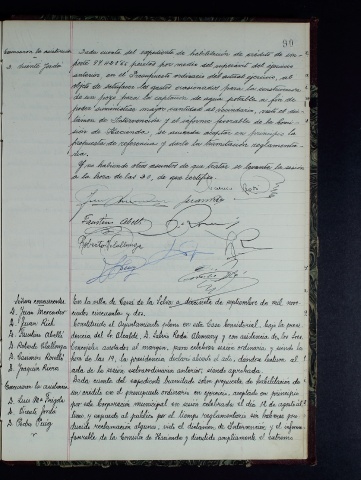 90
Excusaron la asistencia
D. Vicente Jordá
Dada cuenta del expediente de habilitación de crédito de im-
porte pesetas por medio del superavit del ejercicio
anterior en el Presupuesto ordinario del actual ejercicio, al
objeto de satisfacer los gastos ocasionados para la construcción
de un pozo para la captación de agua potable a fin de
poder suministrar mayor cantidad al vecindario, visto el dic-
tamen de Intervención y el informe favorable de la Comi-
sión de Hacienda, se acuerda aceptar en principio la
propuesta de referencia y darle la tramitación reglamenta-
ria.
Y no habiendo otros asuntos de que tratar se levanta la sesión
a la hora de las 20, de que certifico.
Faustino Abelli
Roberto Ribllonga
Señores concurrentes
D. Juan Mercader
D. Juan Rich
D. Faustino Abelli
D. Roberto
D. Casimiro Bonelli
D. Joaquin Riera
Excusaron la asistencia
D. Luis Mª
D. Vicente Jordá
D. Pedro Puig
En la villa de de la Selva a de septiembre de mil nove-
cientos cincuenta y dos.
Constituido el Ayuntamiento pleno en esta Casa Consistorial, bajo la presi-
dencia del Sr. Alcalde, D. Pedro Roda Alemany y con asistencia de los Sres.
Concejales anotados al margen, para celebrar sesión ordinaria y siendo la
hora de las 19, la presidencia declaró abierto el acto, dándose lectura al
acta de la sesión extraordinaria anterior, siendo aprobada.
Dada cuenta del expediente tramitado sobre propuesta de habilitación de
crédito en el presupuesto ordinario en ejercicio, aceptado en principio
por esta Corporación municipal en sesión celebrada el día 12 de agosto úl-
timo, y expuesto al público por el tiempo reglamentario sin haberse pro-
ducido reclamación alguna, visto el dictamen de Intervención y el informe
favorable de la Comisión de Hacienda y discutido ampliamente el extremo